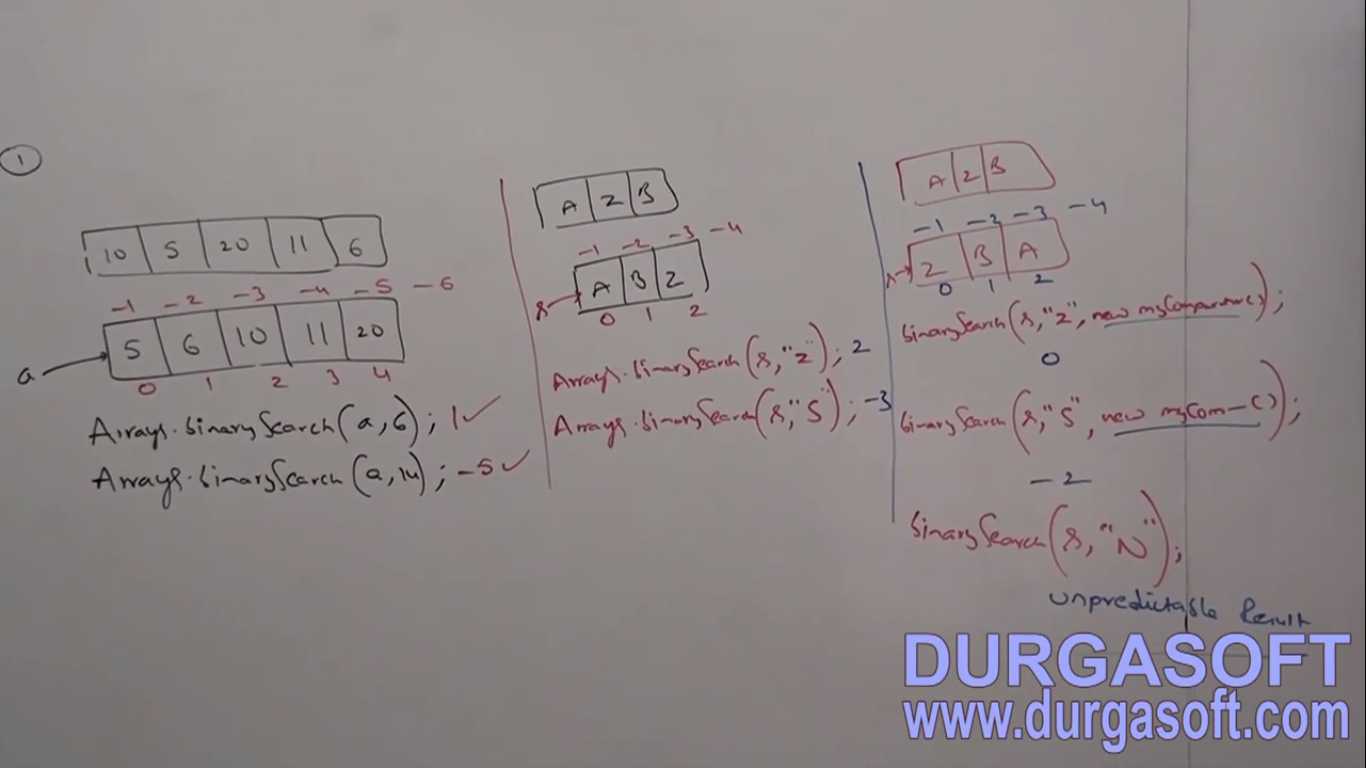 1
10 5 20 11 6
-1 -2 -3 -4 -5 -6
5 6 10 11 20
a
0 1 2 3 4
Arrays.binarySearch(a,6); 1✓
Arrays.binarySearch(a,14); -5✓
A Z B
-1 -2 -3 -4
A B Z
s
0 1 2
Arrays.binarySearch(s,"Z"); 2
Arrays.binarySearch(s,"S"); -3
A Z B
-1 -2 -3 -4
Z B A
s
0 1 2
binarySearch(s,"Z", new myComparator());
0
binarySearch(s,"S", new myCom-());
-2
binarySearch(s,"N");
unpredictable Result
DURGASOFT
www.durgasoft.com